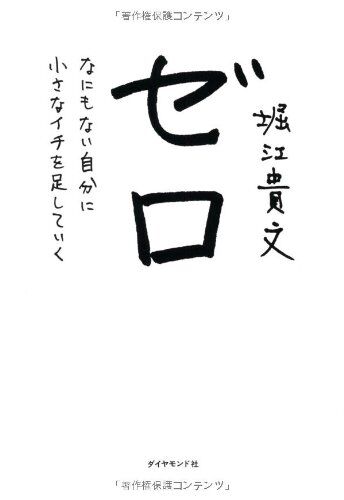 「著作権保護コンテンツ」
堀江貴文
ゼロ
なにもない自分に
小さなイチを足していく
ダイヤモンド社
「著作権保護コンテンツ」